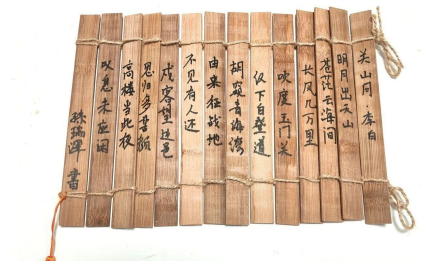 关山同·李白
明月出天山
苍茫云海间
长风几万里
吹度玉门关
汉下白登道
胡窥青海湾
由来征战地
不见有人还
戍客望边色
思归多苦颜
高楼当此夜
叹息未应闲
孙瑞泽 書